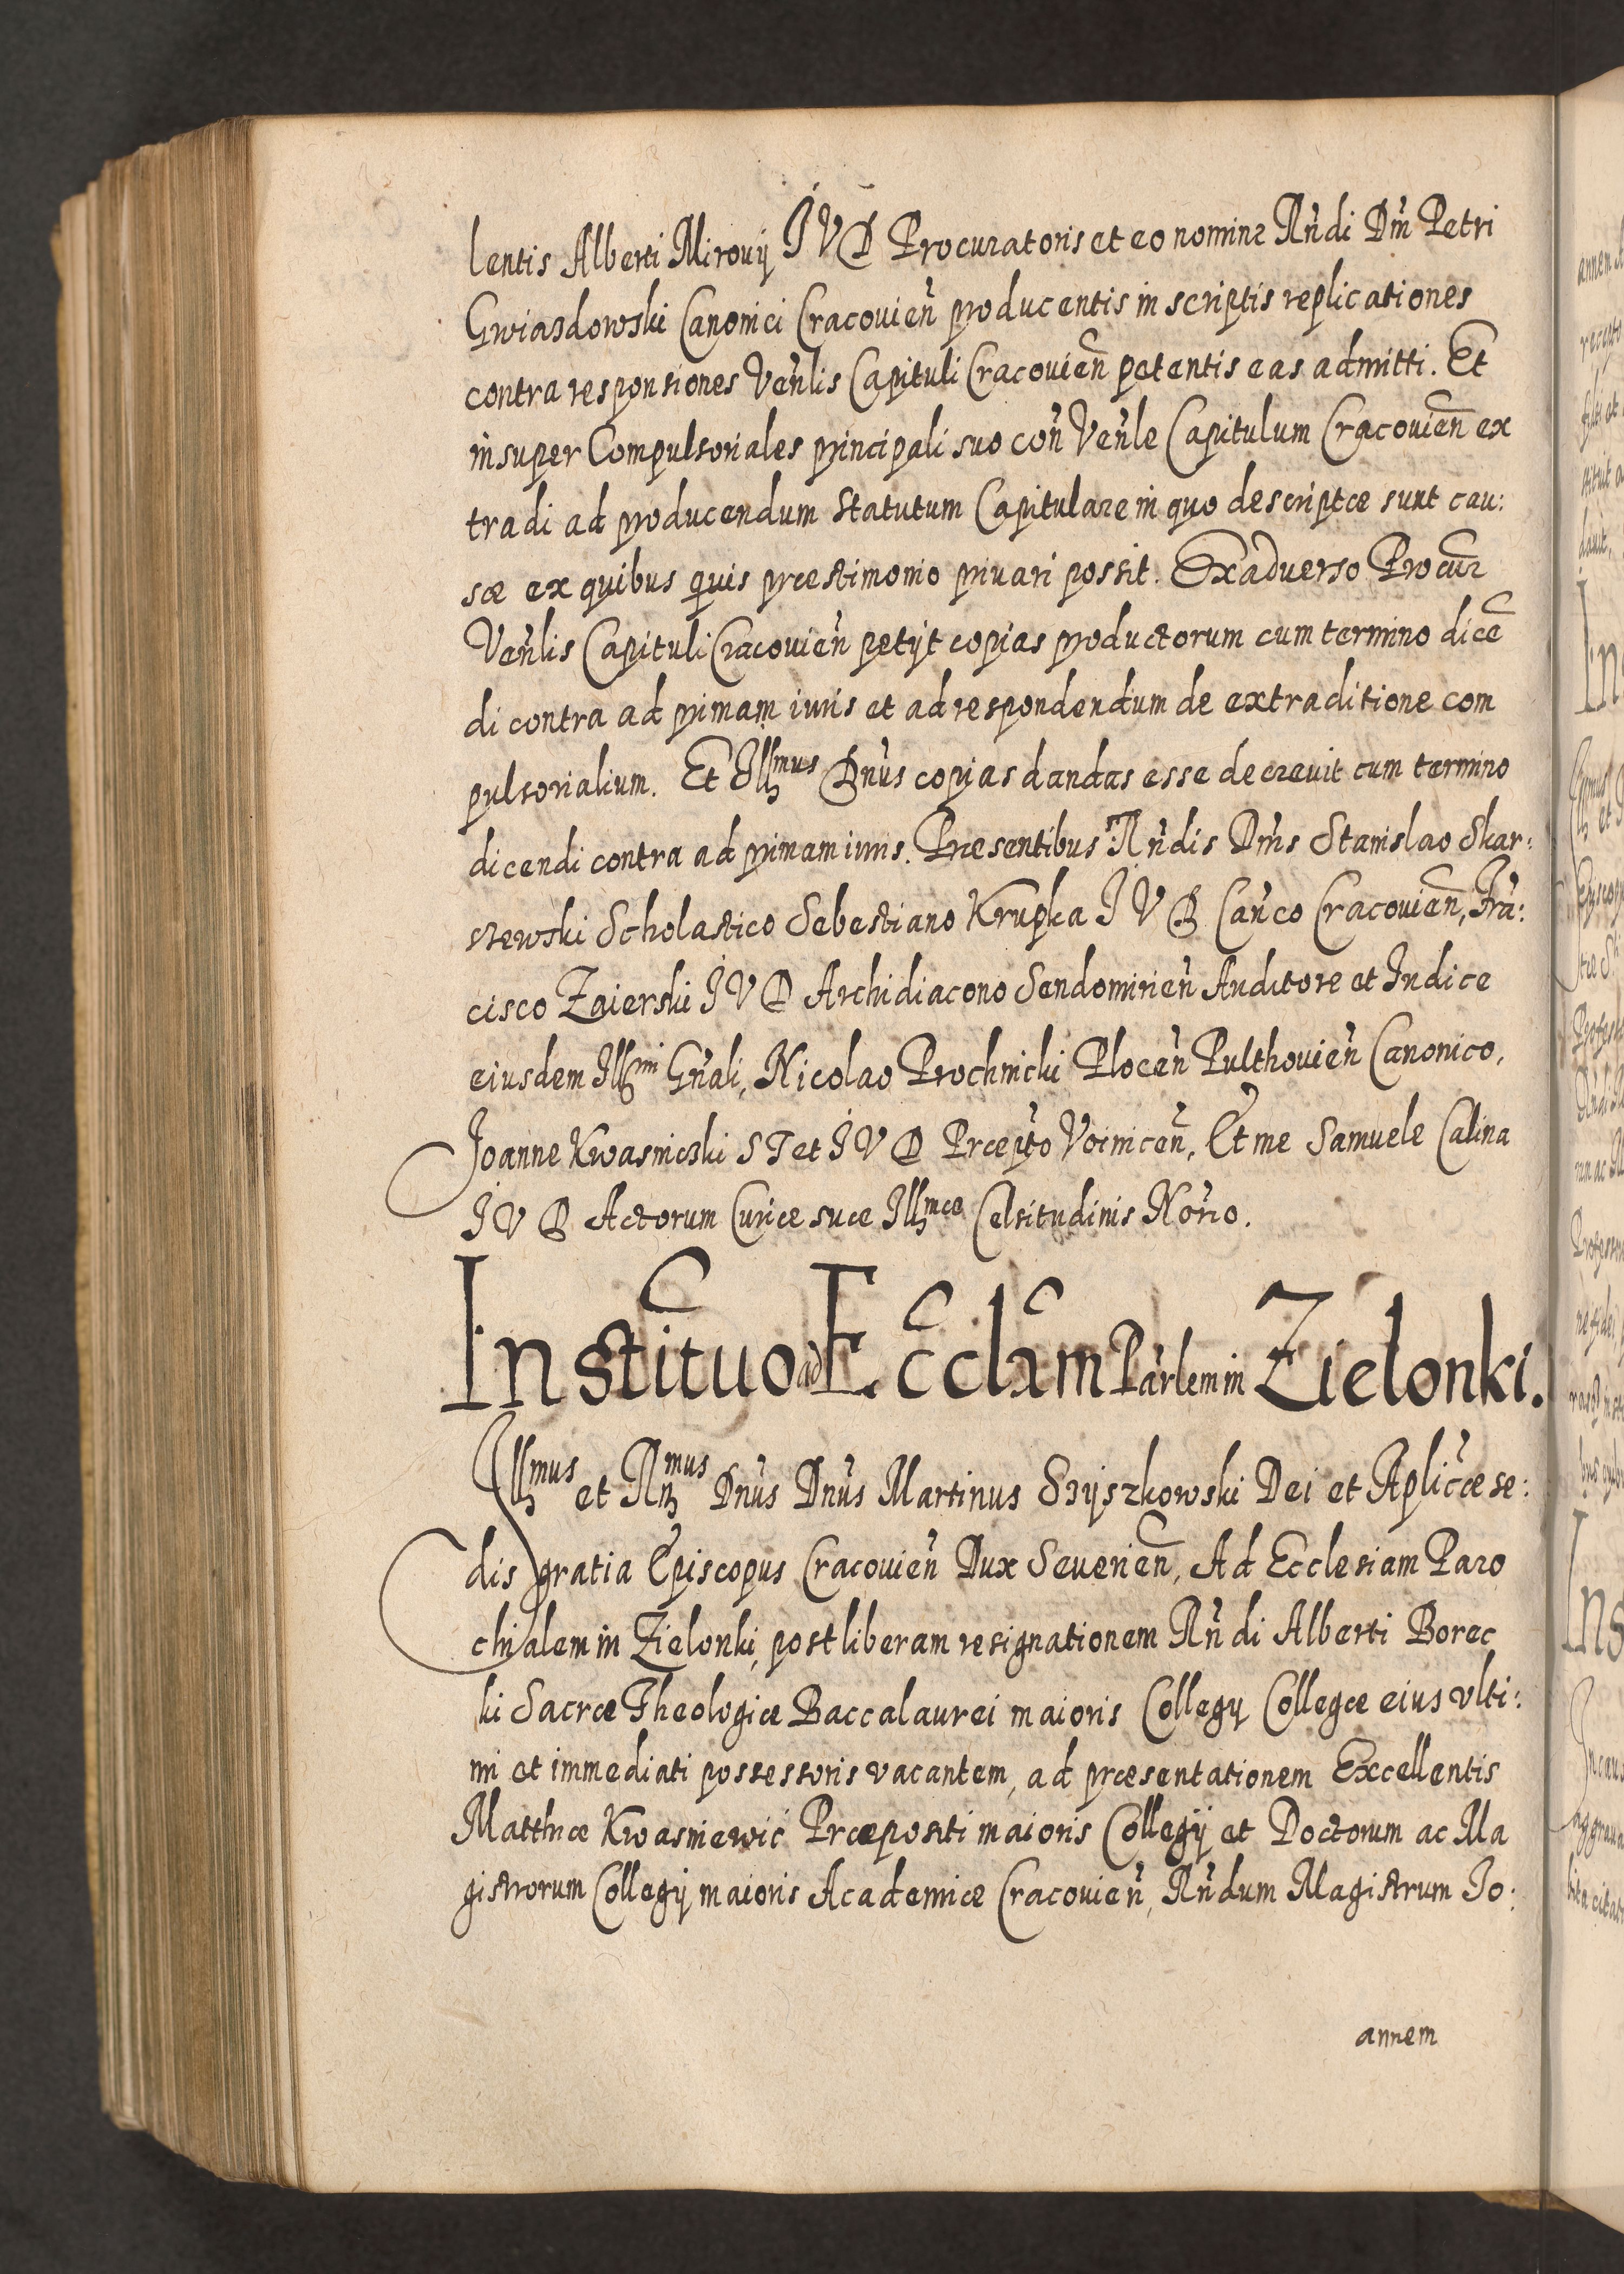 lentis Alberti Mirovij I V D Procuratoris et eo nomine Rñdi Dñi Petri
Gwiasdowski Canonici Cracovieñ producentis in scriptis replicationes
contra responsiones Veñlis Capituli Cracovieñ petentis eas admitti. Et
insuper Compulsoriales principali suo coñ Veñle Capitulum Cracovieñ ex
tradi ad producendum statutum Capitulare in quo descriptæ sunt cau:
sæ ex quibus quis præstimonio privari possit. Ex adverso Procur
Veñlis Capituli Cracovieñ petijt copias productorum cum termino diceñ
di contra ad primam iuris et ad respondendum de extraditione com
pulsorialium. Et Illmus Dnus copias dandas esse decrevit cum termino
dicendi contra ad primam iuris. Præsentibus Rñdis Dñis Stanislao Skar:
szewski Scholastico Sebastiano Krupka I V D Cañco Cracovieñ, Frã:
cisco Zaierski I V D Archidiacono Sendomirieñ Auditore et Iudice
eiusdem Illmi Gñali, Nicolao Prochnicki Ploceñ Pulthovieñ Canonico,
Joanne Kwasnicski S T et I V D Præpto Voiniceñ, Et me Samuele Calina
I V D Actorum Curiæ suæ Illmæ Celsitudinis Norio.
Institutio ad Ecclam Parlem in Zielonki.
Illmus et Rmus Dnus Dnus Martinus Szyszkowski Dei et Aplicæ se:
dis gratia Episcopus Cracovieñ Dux Severieñ, Ad Ecclesiam Paro
chialem in Zielonki, post liberam resignationem Rñdi Alberti Borec
ki Sacræ Theologiæ Baccalaurei maioris Collegij Collegæ eius ulti:
mi et immediati possessoris vacantem, ad præsentationem Excellentis
Matthiæ Kwasniewic Præpositi maioris Collegij et Doctorum ac Ma
gistrorum Collegij maioris Academiæ Cracovieñ, Rñdum Magistrum Jo:
annem